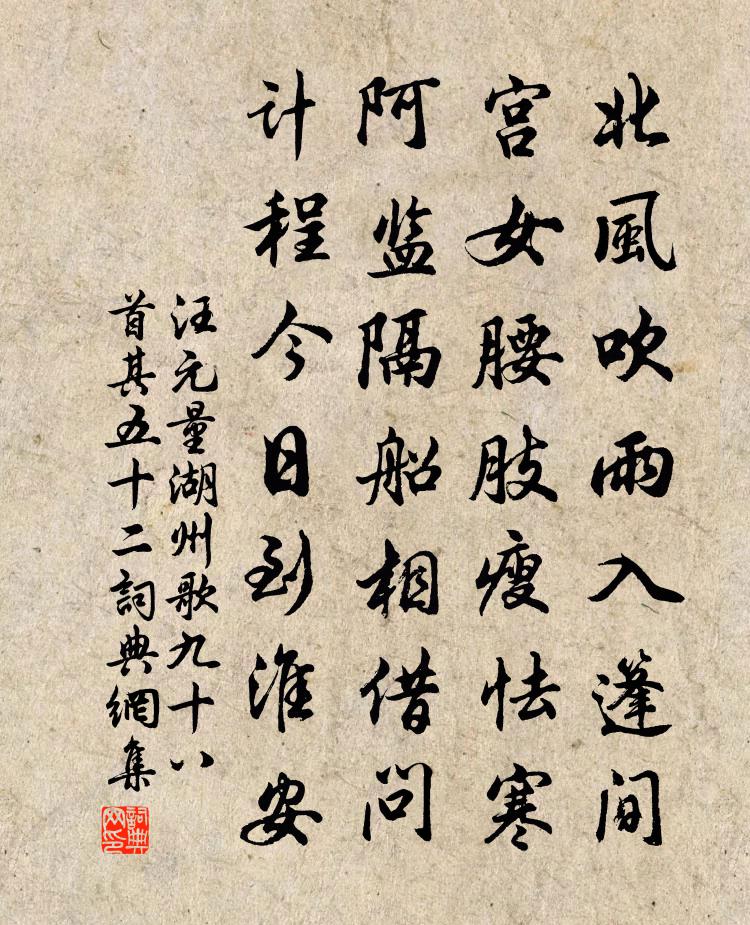 北風吹雨入蓬间
宫女腰肢瘦怯寒
阿监隔船相借问
计程今日到淮安
汪元量湖州歌九十八
首其五十二詞典網集
詞典
网印